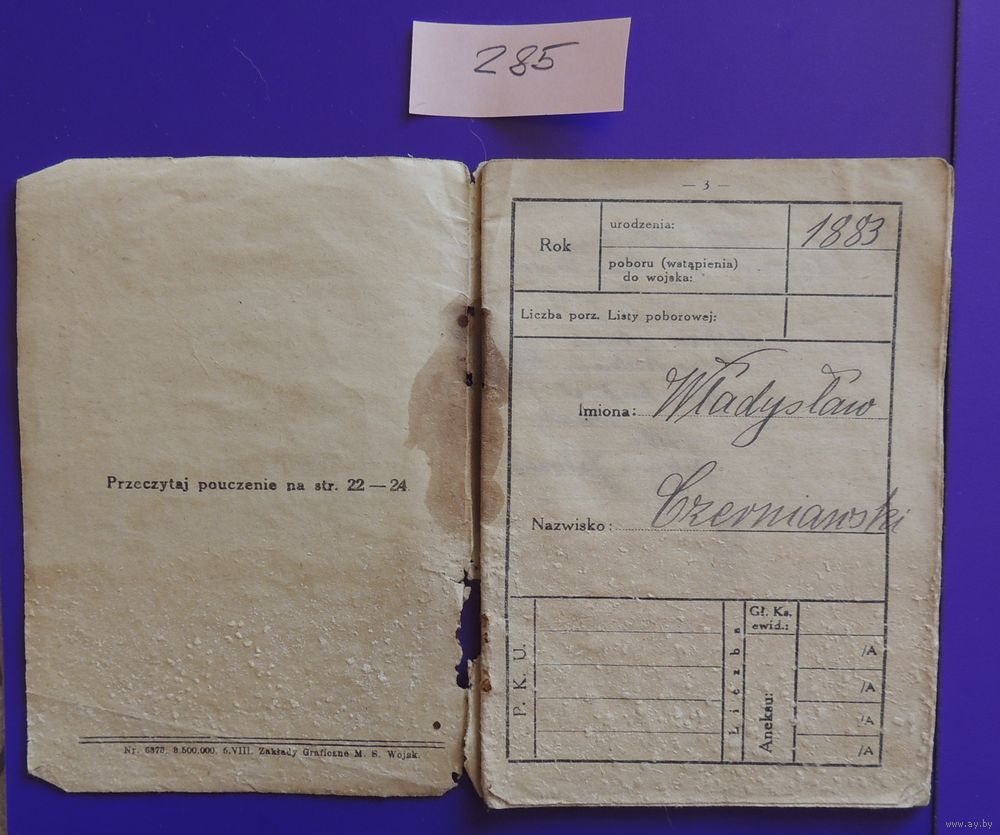 285
Przeczytaj pouczenie na str. 22 — 24
Nr. 6878. 8.500.000. 6.VIII. Zakłady Graficzne M. S. Wojsk.
— 3 —
Rok
urodzenia:
1883
poboru (wstąpienia)
do wojska:
Liczba porz. Listy poborowej:
Imiona: Władysław
Nazwisko: Czerniawski
P. K. U.
Liczba
Gł. Ks.
ewid.:
Aneksu:
/A
/A
/A
/A
www.ay.by